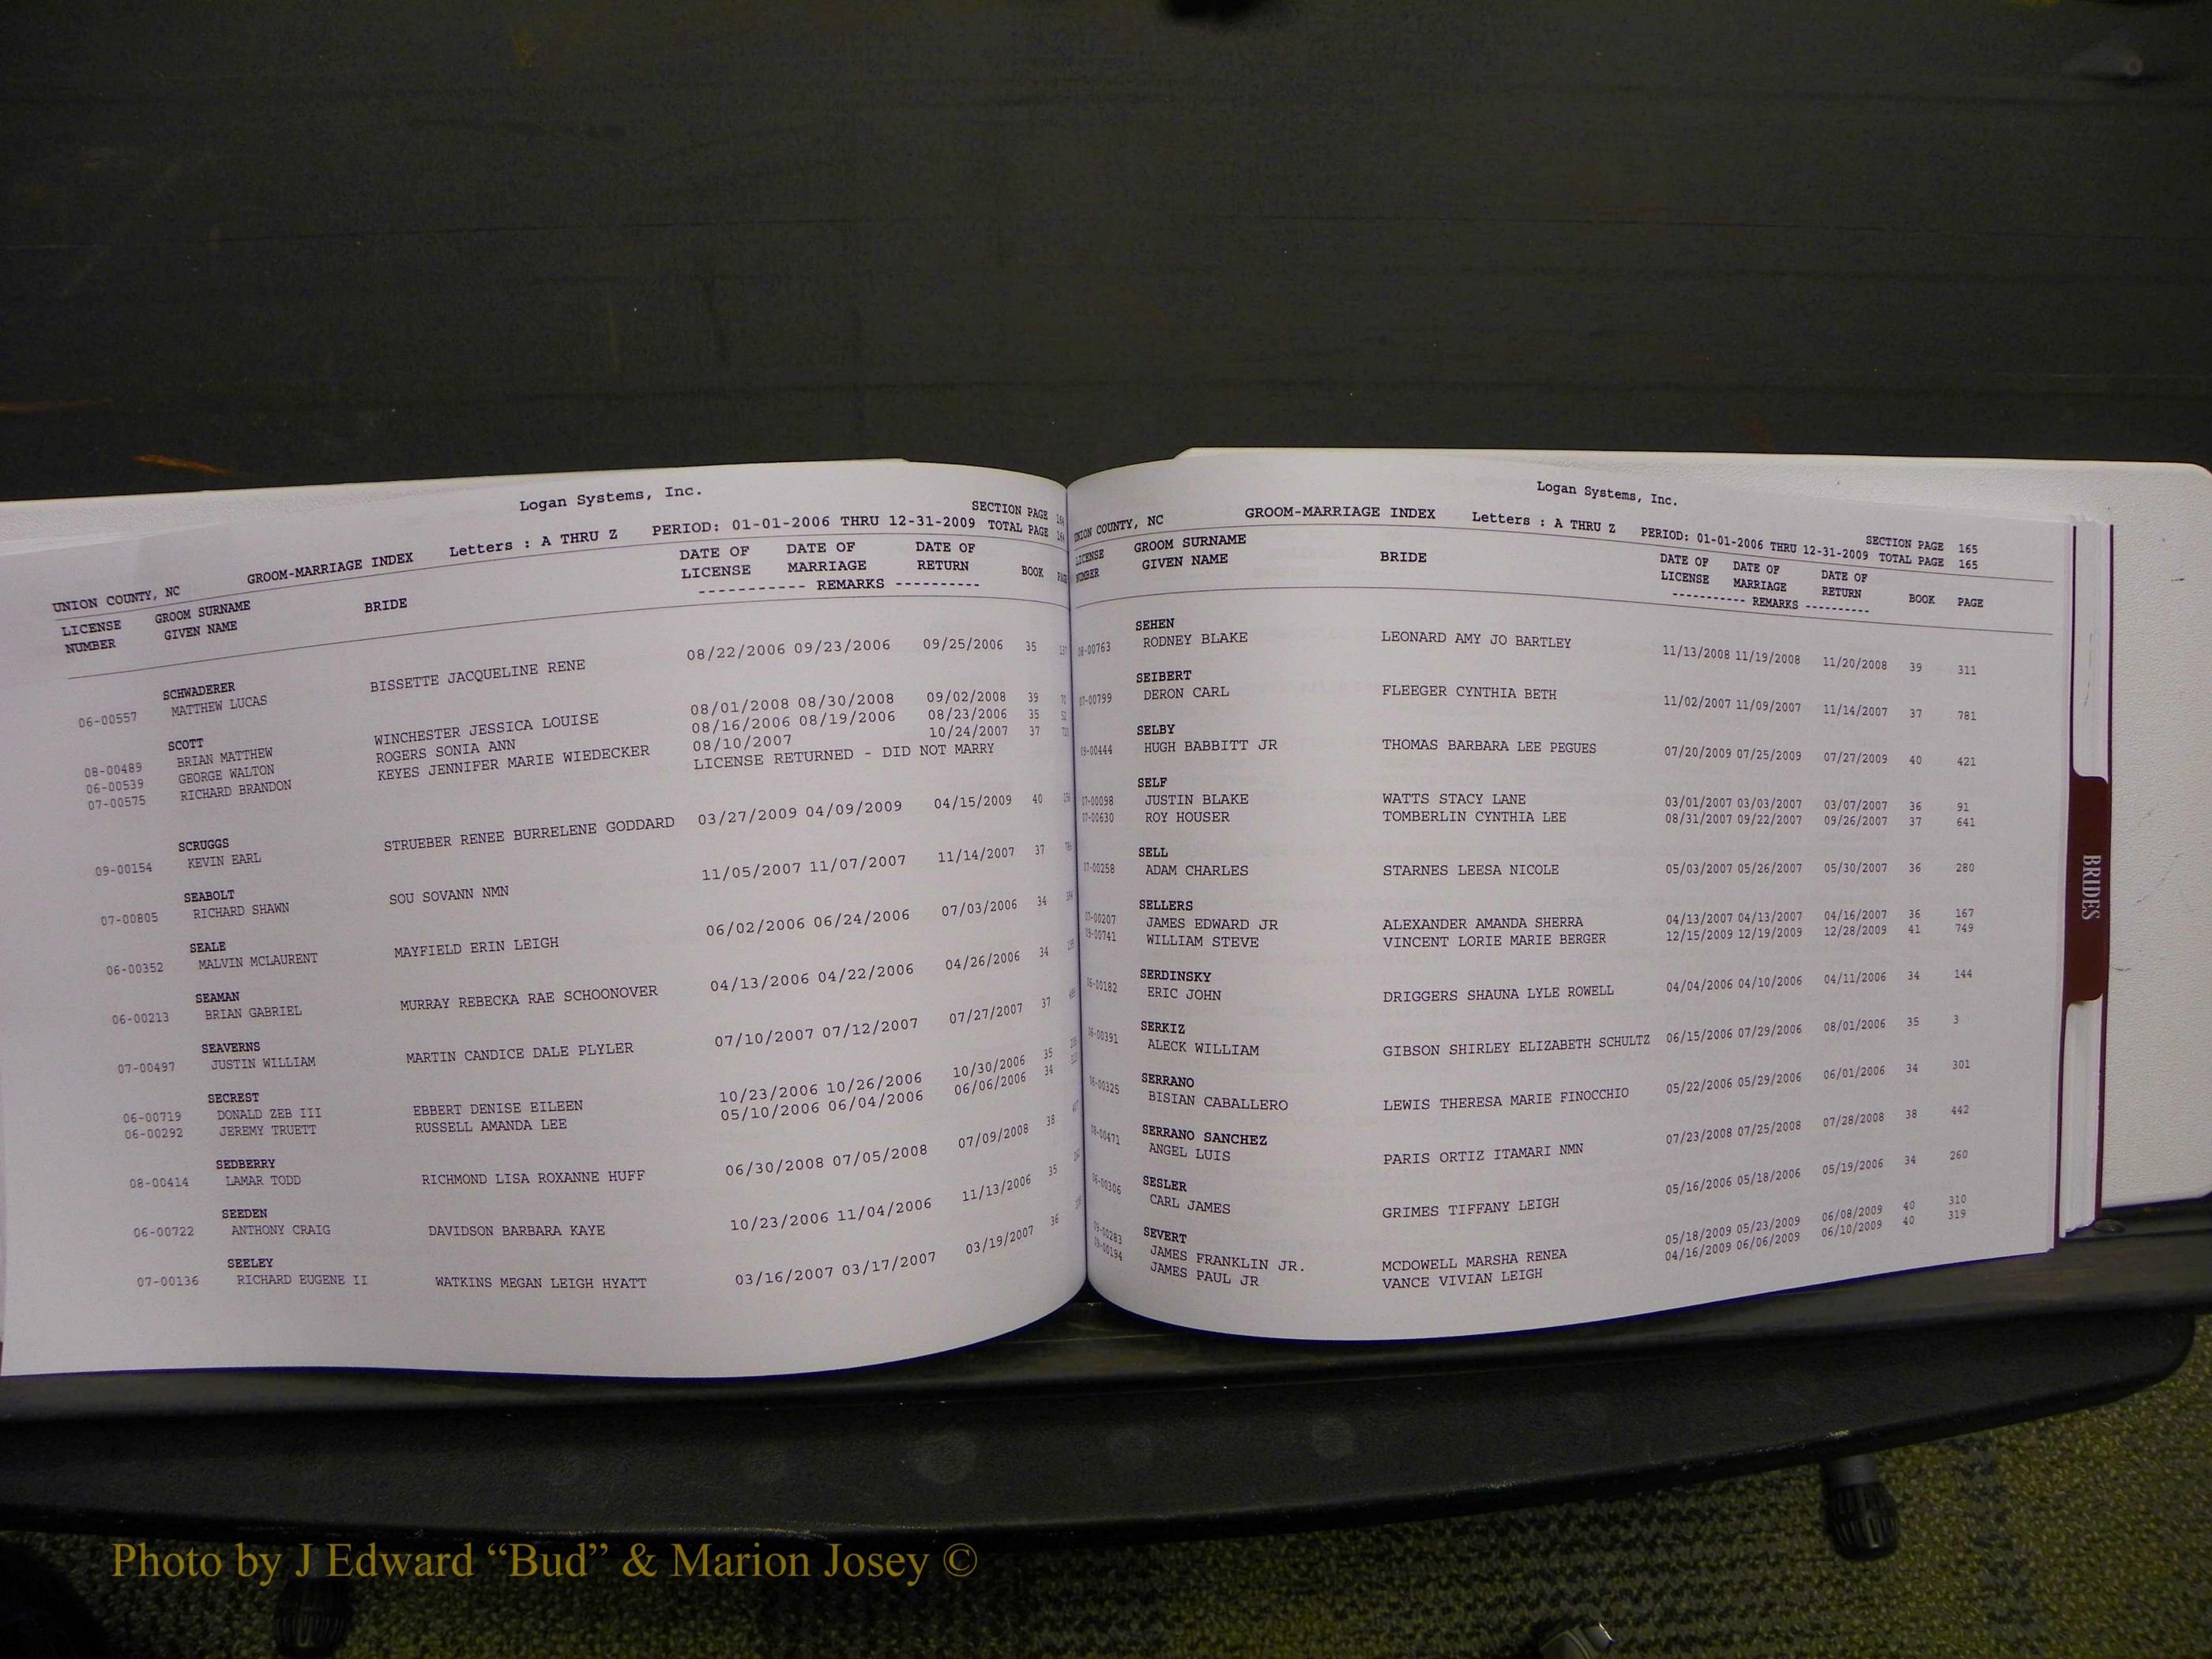 Logan Systems, Inc.
SECTION PAGE 164
UNION COUNTY, NC GROOM-MARRIAGE INDEX Letters : A THRU Z PERIOD: 01-01-2006 THRU 12-31-2009 TOTAL PAGE 164
LICENSE GROOM SURNAME BRIDE DATE OF DATE OF DATE OF BOOK
NUMBER GIVEN NAME LICENSE MARRIAGE RETURN
----------- REMARKS ----------
SCHWADERER
06-00557 MATTHEW LUCAS BISSETTE JACQUELINE RENE 08/22/2006 09/23/2006 09/25/2006 35
SCOTT
08-00489 BRIAN MATTHEW WINCHESTER JESSICA LOUISE 08/01/2008 08/30/2008 09/02/2008 39
06-00539 GEORGE WALTON ROGERS SONIA ANN 08/16/2006 08/19/2006 08/23/2006 35
07-00575 RICHARD BRANDON KEYES JENNIFER MARIE WIEDECKER 08/10/2007 10/24/2007 37
LICENSE RETURNED - DID NOT MARRY
SCRUGGS
09-00154 KEVIN EARL STRUEBER RENEE BURRELENE GODDARD 03/27/2009 04/09/2009 04/15/2009 40
SEABOLT
07-00805 RICHARD SHAWN SOU SOVANN NMN 11/05/2007 11/07/2007 11/14/2007 37
SEALE
06-00352 MALVIN MCLAURENT MAYFIELD ERIN LEIGH 06/02/2006 06/24/2006 07/03/2006 34
SEAMAN
06-00213 BRIAN GABRIEL MURRAY REBECKA RAE SCHOONOVER 04/13/2006 04/22/2006 04/26/2006 34
SEAVERNS
07-00497 JUSTIN WILLIAM MARTIN CANDICE DALE PLYLER 07/10/2007 07/12/2007 07/27/2007 37
SECREST
06-00719 DONALD ZEB III EBBERT DENISE EILEEN 10/23/2006 10/26/2006 10/30/2006 35
06-00292 JEREMY TRUETT RUSSELL AMANDA LEE 05/10/2006 06/04/2006 06/06/2006 34
SEDBERRY
08-00414 LAMAR TODD RICHMOND LISA ROXANNE HUFF 06/30/2008 07/05/2008 07/09/2008 38
SEEDEN
06-00722 ANTHONY CRAIG DAVIDSON BARBARA KAYE 10/23/2006 11/04/2006 11/13/2006 35
SEELEY
07-00136 RICHARD EUGENE II WATKINS MEGAN LEIGH HYATT 03/16/2007 03/17/2007 03/19/2007 36
Logan Systems, Inc.
SECTION PAGE 165
UNION COUNTY, NC GROOM-MARRIAGE INDEX Letters : A THRU Z PERIOD: 01-01-2006 THRU 12-31-2009 TOTAL PAGE 165
LICENSE GROOM SURNAME BRIDE DATE OF DATE OF DATE OF BOOK PAGE
NUMBER GIVEN NAME LICENSE MARRIAGE RETURN
----------- REMARKS ----------
SEHEN
08-00763 RODNEY BLAKE LEONARD AMY JO BARTLEY 11/13/2008 11/19/2008 11/20/2008 39 311
SEIBERT
07-00799 DERON CARL FLEEGER CYNTHIA BETH 11/02/2007 11/09/2007 11/14/2007 37 781
SELBY
09-00444 HUGH BABBITT JR THOMAS BARBARA LEE PEGUES 07/20/2009 07/25/2009 07/27/2009 40 421
SELF
07-00098 JUSTIN BLAKE WATTS STACY LANE 03/01/2007 03/03/2007 03/07/2007 36 91
07-00630 ROY HOUSER TOMBERLIN CYNTHIA LEE 08/31/2007 09/22/2007 09/26/2007 37 641
SELL
07-00258 ADAM CHARLES STARNES LEESA NICOLE 05/03/2007 05/26/2007 05/30/2007 36 280
SELLERS
07-00207 JAMES EDWARD JR ALEXANDER AMANDA SHERRA 04/13/2007 04/13/2007 04/16/2007 36 167
09-00741 WILLIAM STEVE VINCENT LORIE MARIE BERGER 12/15/2009 12/19/2009 12/28/2009 41 749
SERDINSKY
06-00182 ERIC JOHN DRIGGERS SHAUNA LYLE ROWELL 04/04/2006 04/10/2006 04/11/2006 34 144
SERKIZ
06-00391 ALECK WILLIAM GIBSON SHIRLEY ELIZABETH SCHULTZ 06/15/2006 07/29/2006 08/01/2006 35 3
SERRANO
06-00325 BISIAN CABALLERO LEWIS THERESA MARIE FINOCCHIO 05/22/2006 05/29/2006 06/01/2006 34 301
SERRANO SANCHEZ
08-00471 ANGEL LUIS PARIS ORTIZ ITAMARI NMN 07/23/2008 07/25/2008 07/28/2008 38 442
SESLER
06-00306 CARL JAMES GRIMES TIFFANY LEIGH 05/16/2006 05/18/2006 05/19/2006 34 260
SEVERT
09-00283 JAMES FRANKLIN JR. MCDOWELL MARSHA RENEA 05/18/2009 05/23/2009 06/08/2009 40 310
09-00194 JAMES PAUL JR VANCE VIVIAN LEIGH 04/16/2009 06/06/2009 06/10/2009 40 319
BRIDES
Photo by J Edward “Bud” & Marion Josey ©